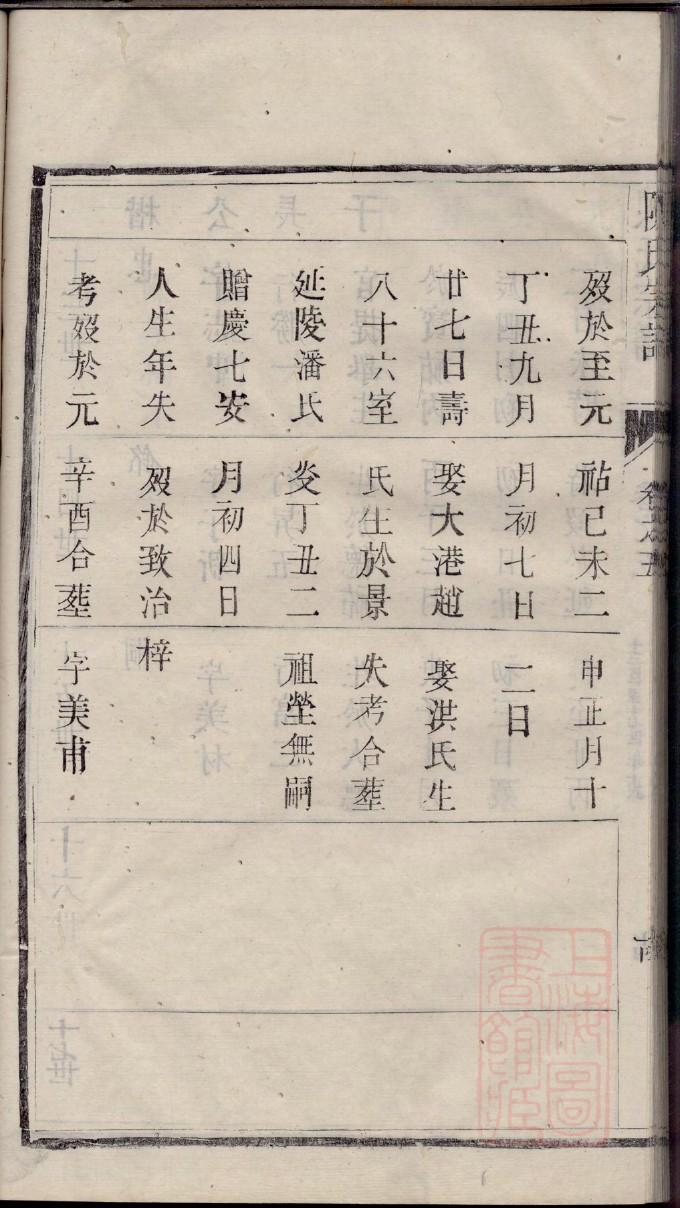 陳氏宗譜
卷之五
歿於至元
丁丑九月
廿七日壽
八十六室
延陵潘氏
贈慶七安
人生年失
考歿於元
祐己未二
月初七日
娶大港趙
氏生於景
炎丁丑二
月初四日
歿於致治
辛酉合塟
申正月十
二日
娶洪氏生
失考合塟
祖塋無嗣
梓
字美甫
上海圖書館藏